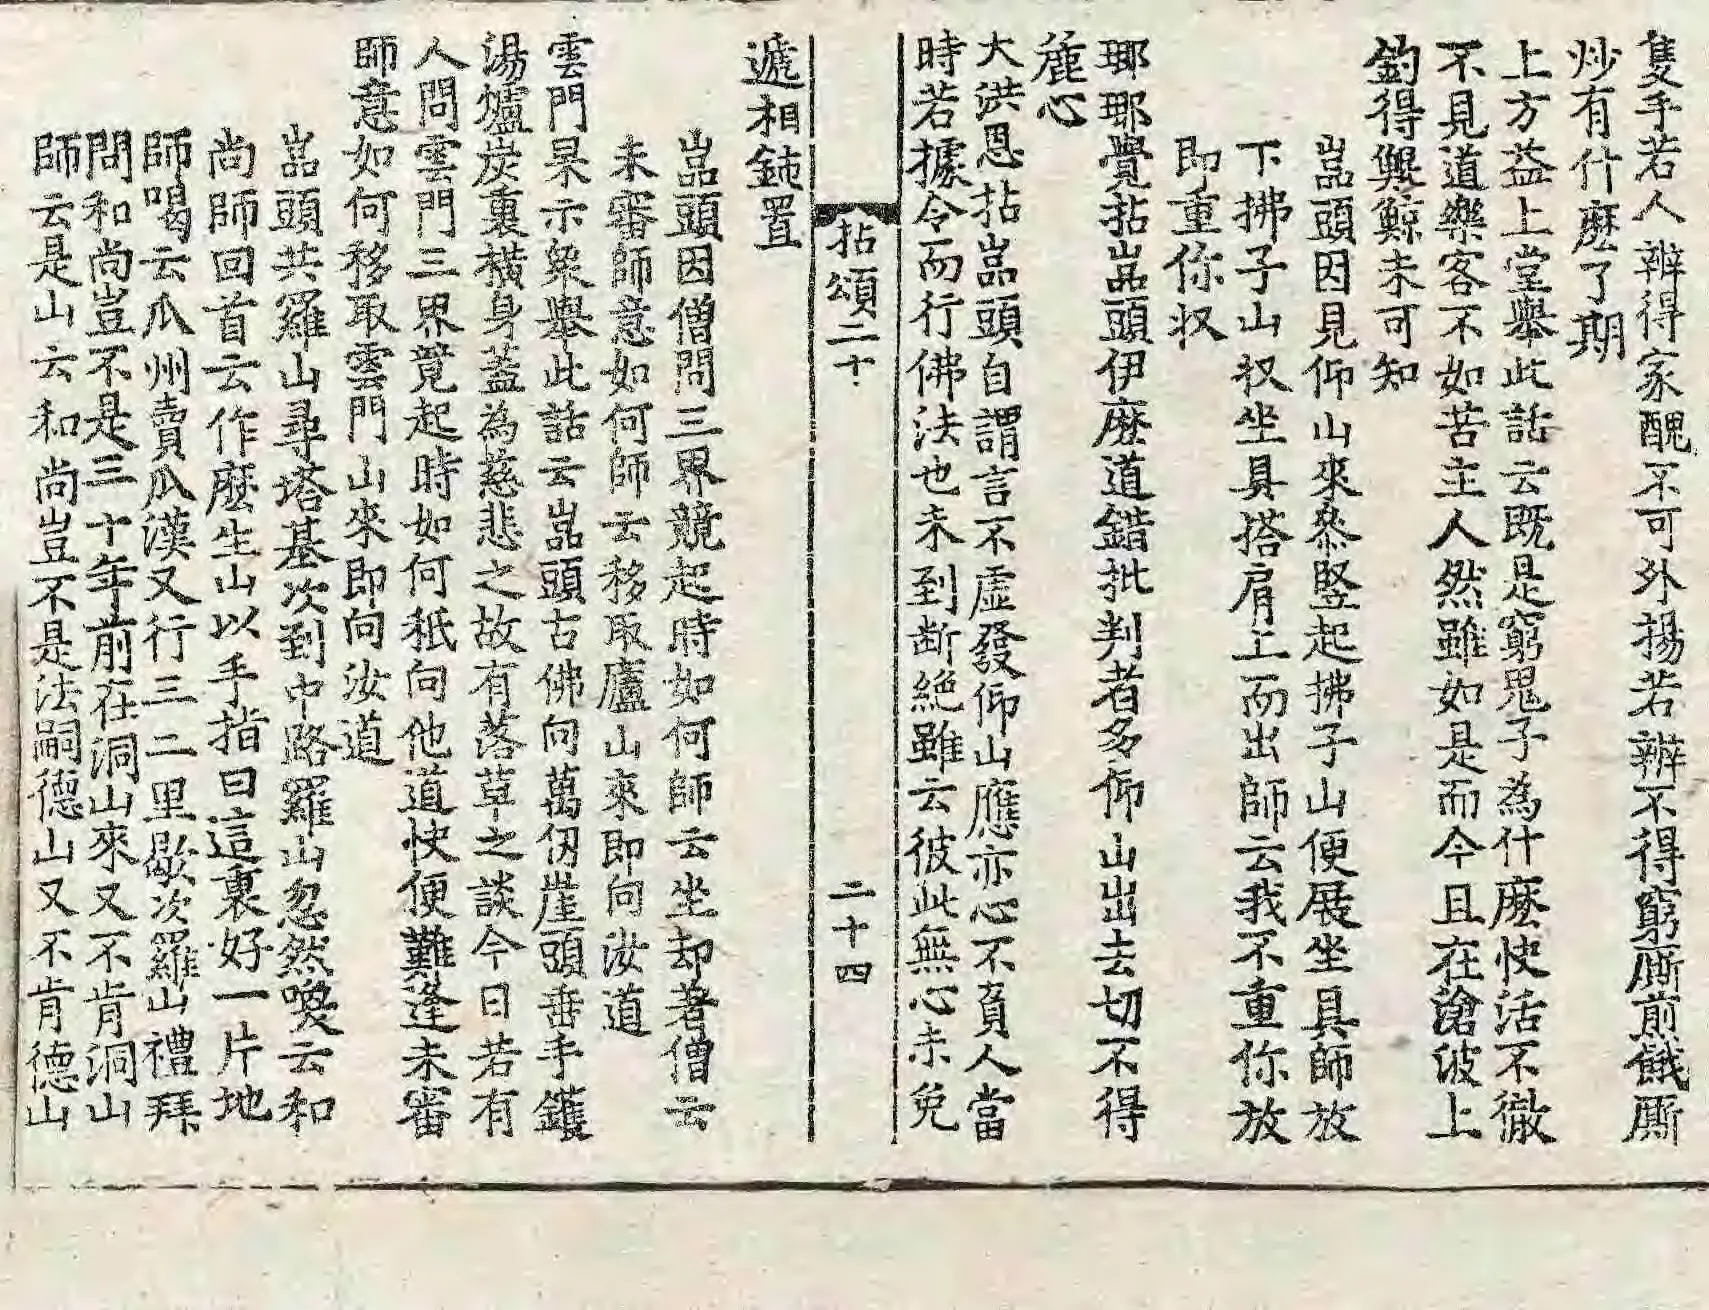 隻手若人辨得家醜不可外揚若辨不得窮厮煎餓厮
炒有什麽了期
上方益上堂舉此話云既是窮鬼子為什麽快活不徹
不見道樂客不如苦主人然雖如是而今且在滄波上
釣得鯤鯨未可知
嵓頭因見仰山來叅竪起拂子山便展坐具師放
下拂子山収坐具搭肩上而出師云我不重你放
即重你収
瑯琊覺拈嵓頭伊麽道錯批判者多仰山出去切不得
麁心
大洪恩拈嵓頭自謂言不虛發仰山應亦心不負人當
時若據令而行佛法也未到断絶雖云彼此無心未免
拈頌二十
二十四
遞相鈍置
嵓頭因僧問三界競起時如何師云坐却著僧云
未審師意如何師云移取廬山來即向汝道
雲門杲示衆舉此話云嵓頭古佛向萬仞崖頭垂手鑊
湯爐炭裏橫身蓋為慈悲之故有落草之談今日若有
人問雲門三界竟起時如何秪向他道快便難逢未審
師意如何移取雲門山來即向汝道
嵓頭共羅山尋塔基次到中路羅山忽然喚云和
尚師回首云作麽生山以手指曰這裏好一片地
師喝云瓜州賣瓜漢又行三二里歇次羅山禮拜
問和尚豈不是三十年前在洞山來又不肯洞山
師云是山云和尚豈不是法嗣德山又不肯德山